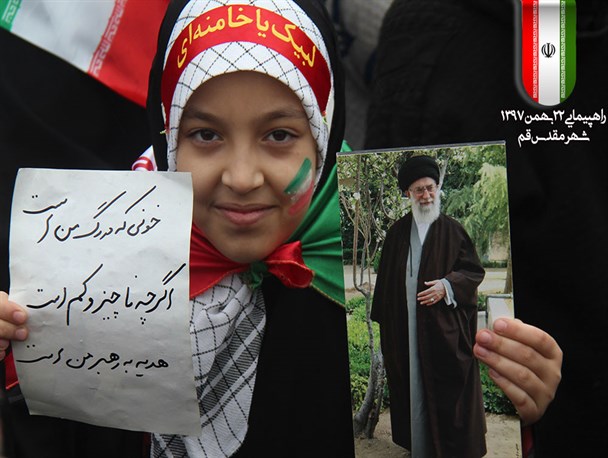 لبیک یا خامنه‌ای
راهپیمایی ۲۲ بهمن ۱۳۹۷
شهر مقدس قم
خونی که در رگ من است
اگرچه ناچیز و کم است
هدیه به رهبر من است